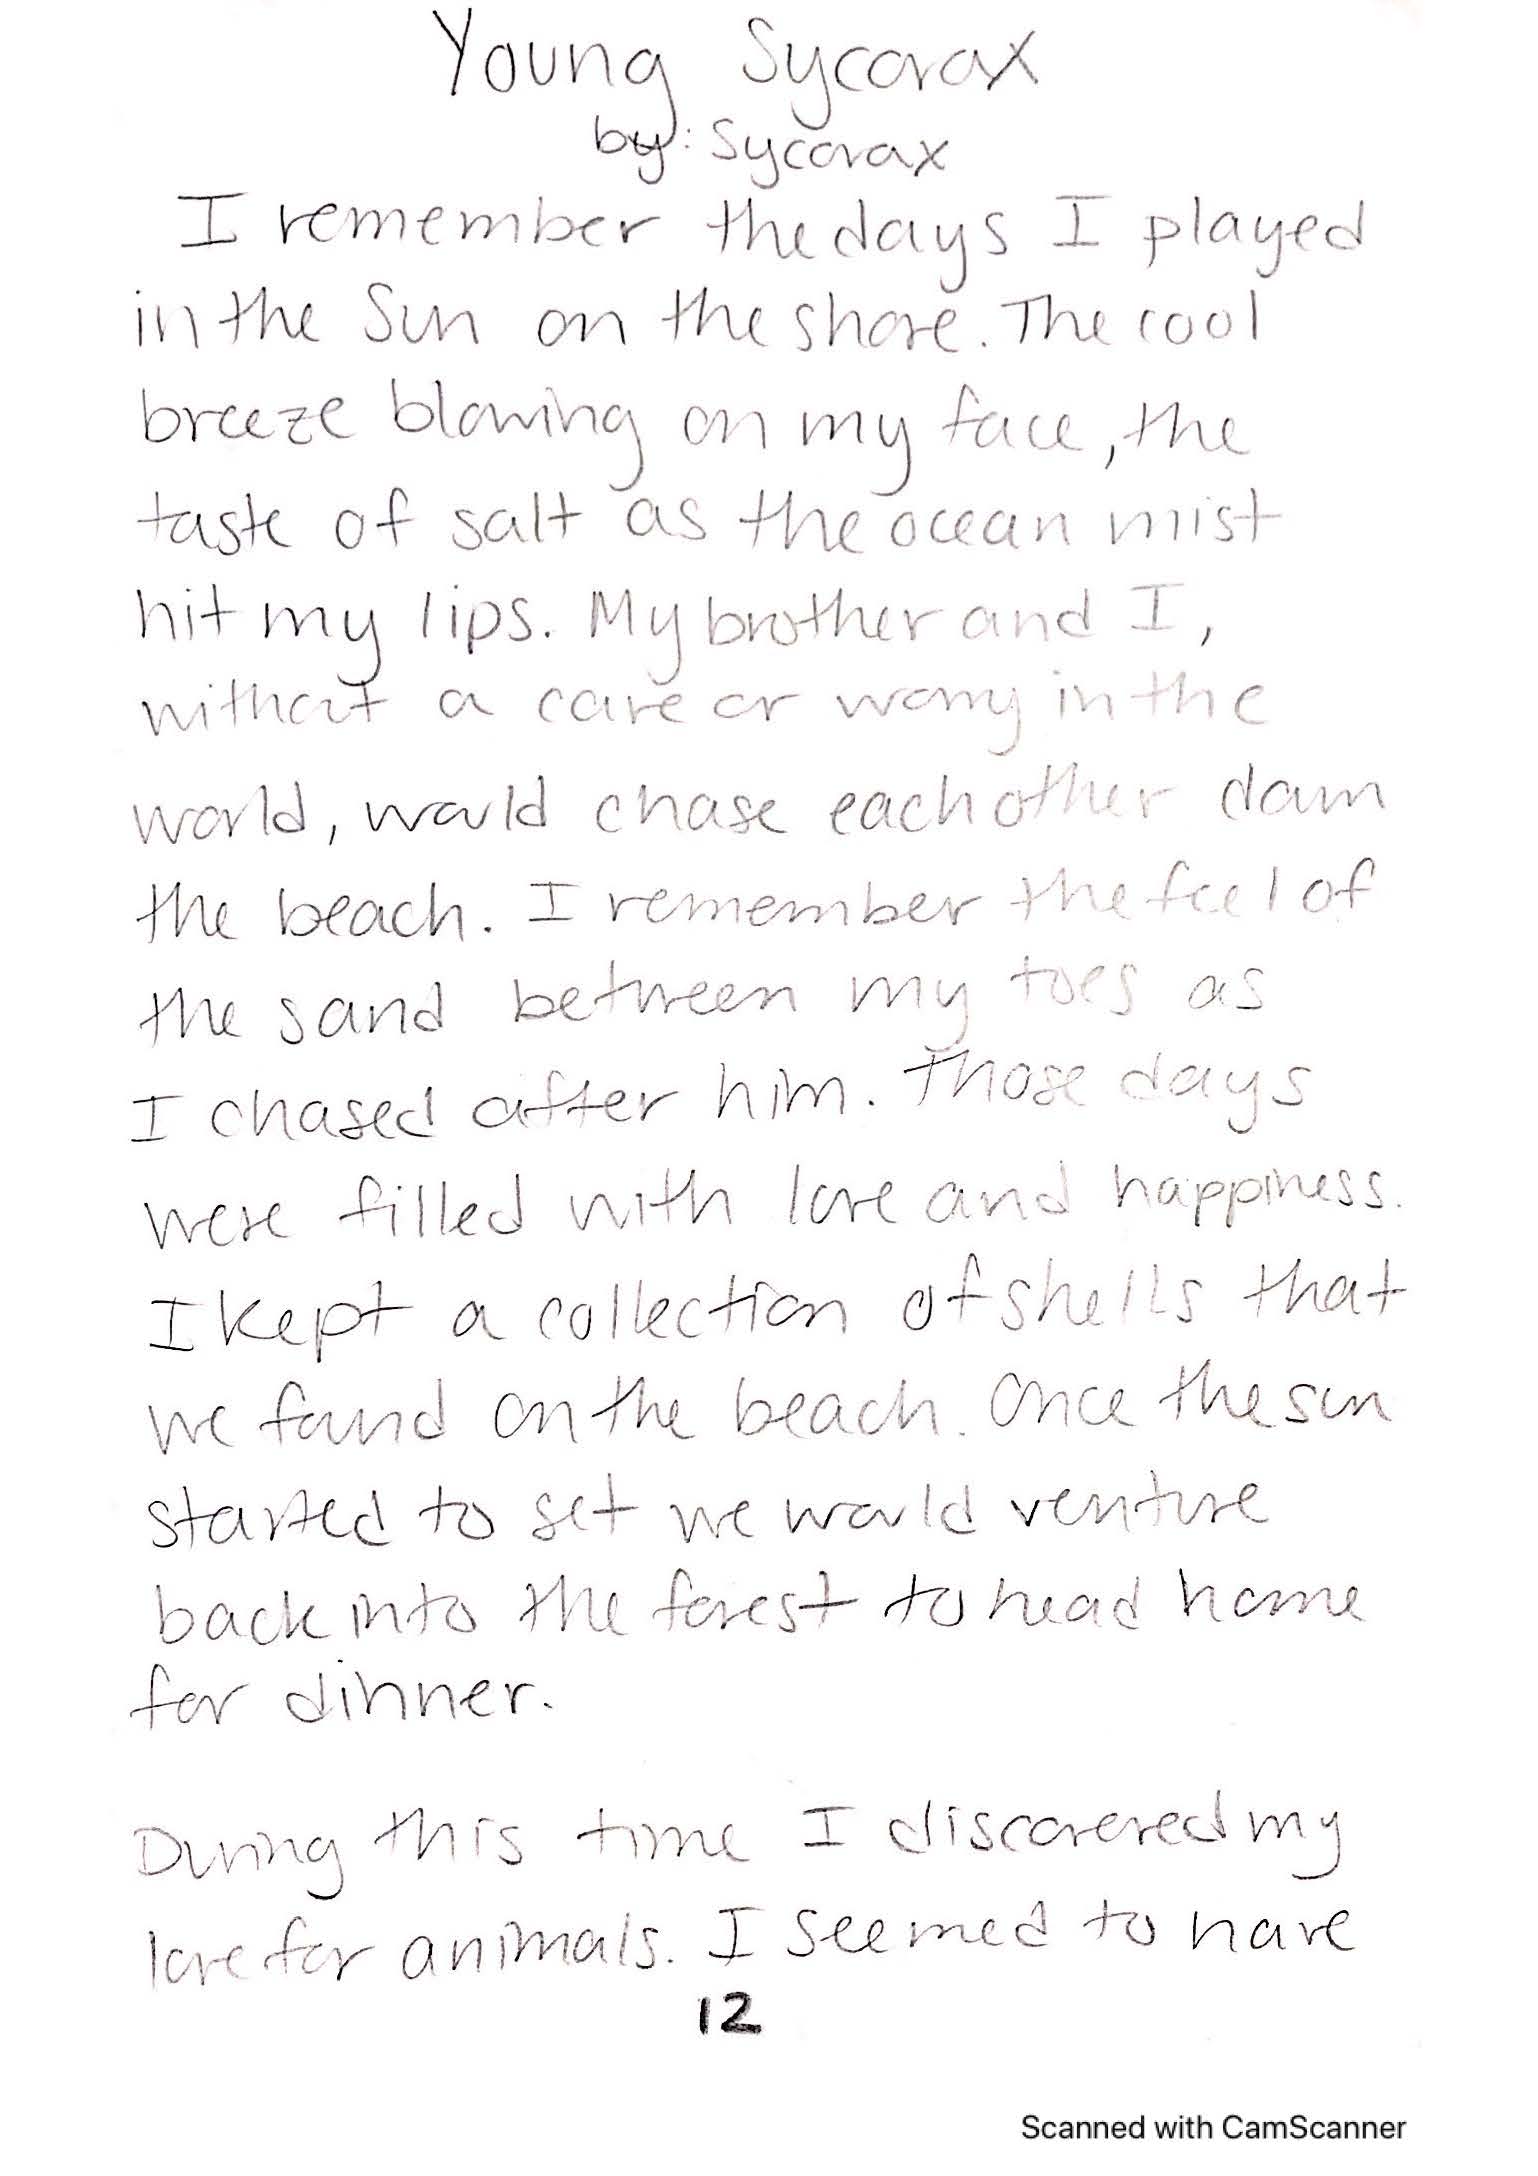 Young Sycorax
by: Sycorax
I remember the days I played
in the Sun on the shore. The cool
breeze blowing on my face, the
taste of salt as the ocean mist
hit my lips. My brother and I,
without a care or worry in the
world, would chase each other down
the beach. I remember the feel of
the sand between my toes as
I chased after him. Those days
were filled with love and happiness.
I kept a collection of shells that
we found on the beach. Once the sun
started to set we would venture
back into the forest to head home
for dinner.
During this time I discovered my
love for animals. I seemed to have
12
Scanned with CamScanner